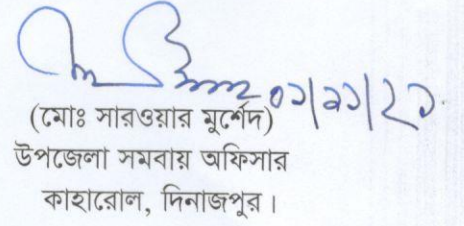 ০১/১১/২১
(মোঃ সারওয়ার মুর্শেদ)
উপজেলা সমবায় অফিসার
কাহারোল, দিনাজপুর।